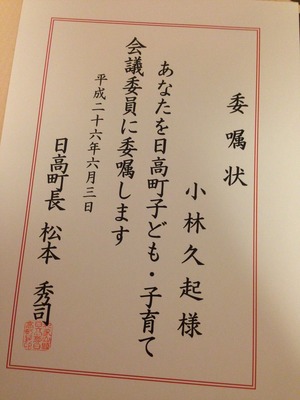 委嘱状
小林久起様
あなたを日高町子ども・子育て
会議委員に委嘱します
平成二十六年六月三日
日高町長 松本 秀司